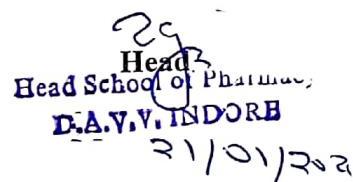 Head
Head School of Pharmacy
D.A.V.V. INDORE
21/01/202